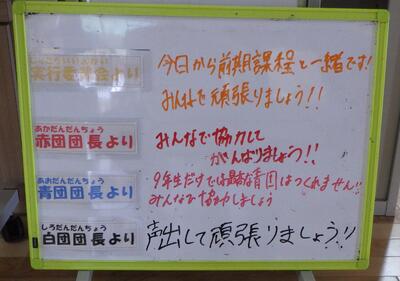 じっこういいんかい
実行委員会より
今日から前期課程と一緒です!
みんなで頑張りましょう!!
あかだんだんちょう
赤団団長より
みんなで協力して
がんばりましょう!!
あおだんだんちょう
青団団長より
9年生だけでは最高な青団はつくれません!!
みんなで協力しましょう
しろだんだんちょう
白団団長より
声出して頑張りましょう!!